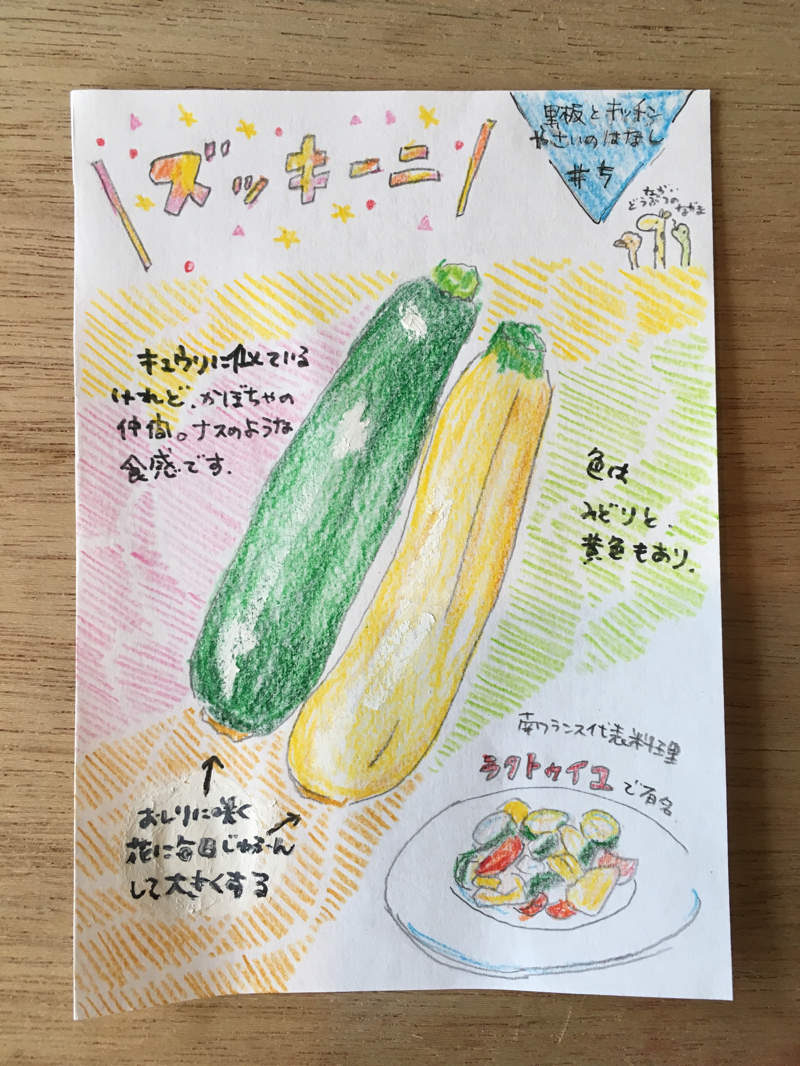 ズッキーニ
黒板とキッチン
やさいのはなし
#5
ながい
どうぶつの
なかま
キュウリに似ている
けれど、かぼちゃの
仲間。ナスのような
食感です。
色は
みどりと、
黄色もあり。
南フランス代表料理
ラタトゥイユで有名
おしりに咲く
花に毎日じゅふん
して大きくする